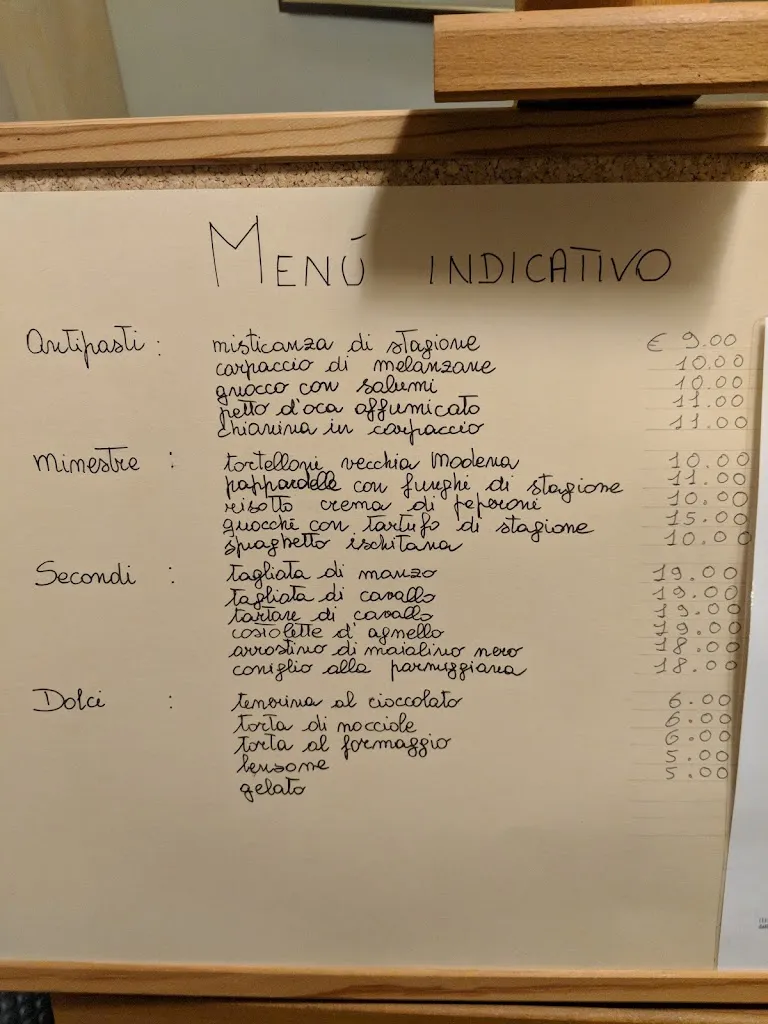 MENÚ INDICATIVO
Antipasti : misticanza di stagione € 9.00
carpaccio di melanzane 10.00
gnocco con salumi 10.00
petto d'oca affumicato 11.00
chianina in carpaccio 11.00
Minestre : tortelloni vecchia Modena 10.00
pappardelle con funghi di stagione 11.00
risotto crema di peperoni 10.00
gnocchi con tartufo di stagione 15.00
spaghetto ischitana 10.00
Secondi : tagliata di manzo 19.00
tagliata di cavallo 19.00
tartare di cavallo 19.00
costolette d'agnello 19.00
arrostino di maialino nero 18.00
coniglio alla parmiggiana 18.00
Dolci : tenerina al cioccolato 6.00
torta di nocciole 6.00
torta al formaggio 6.00
bensone 5.00
gelato 5.00